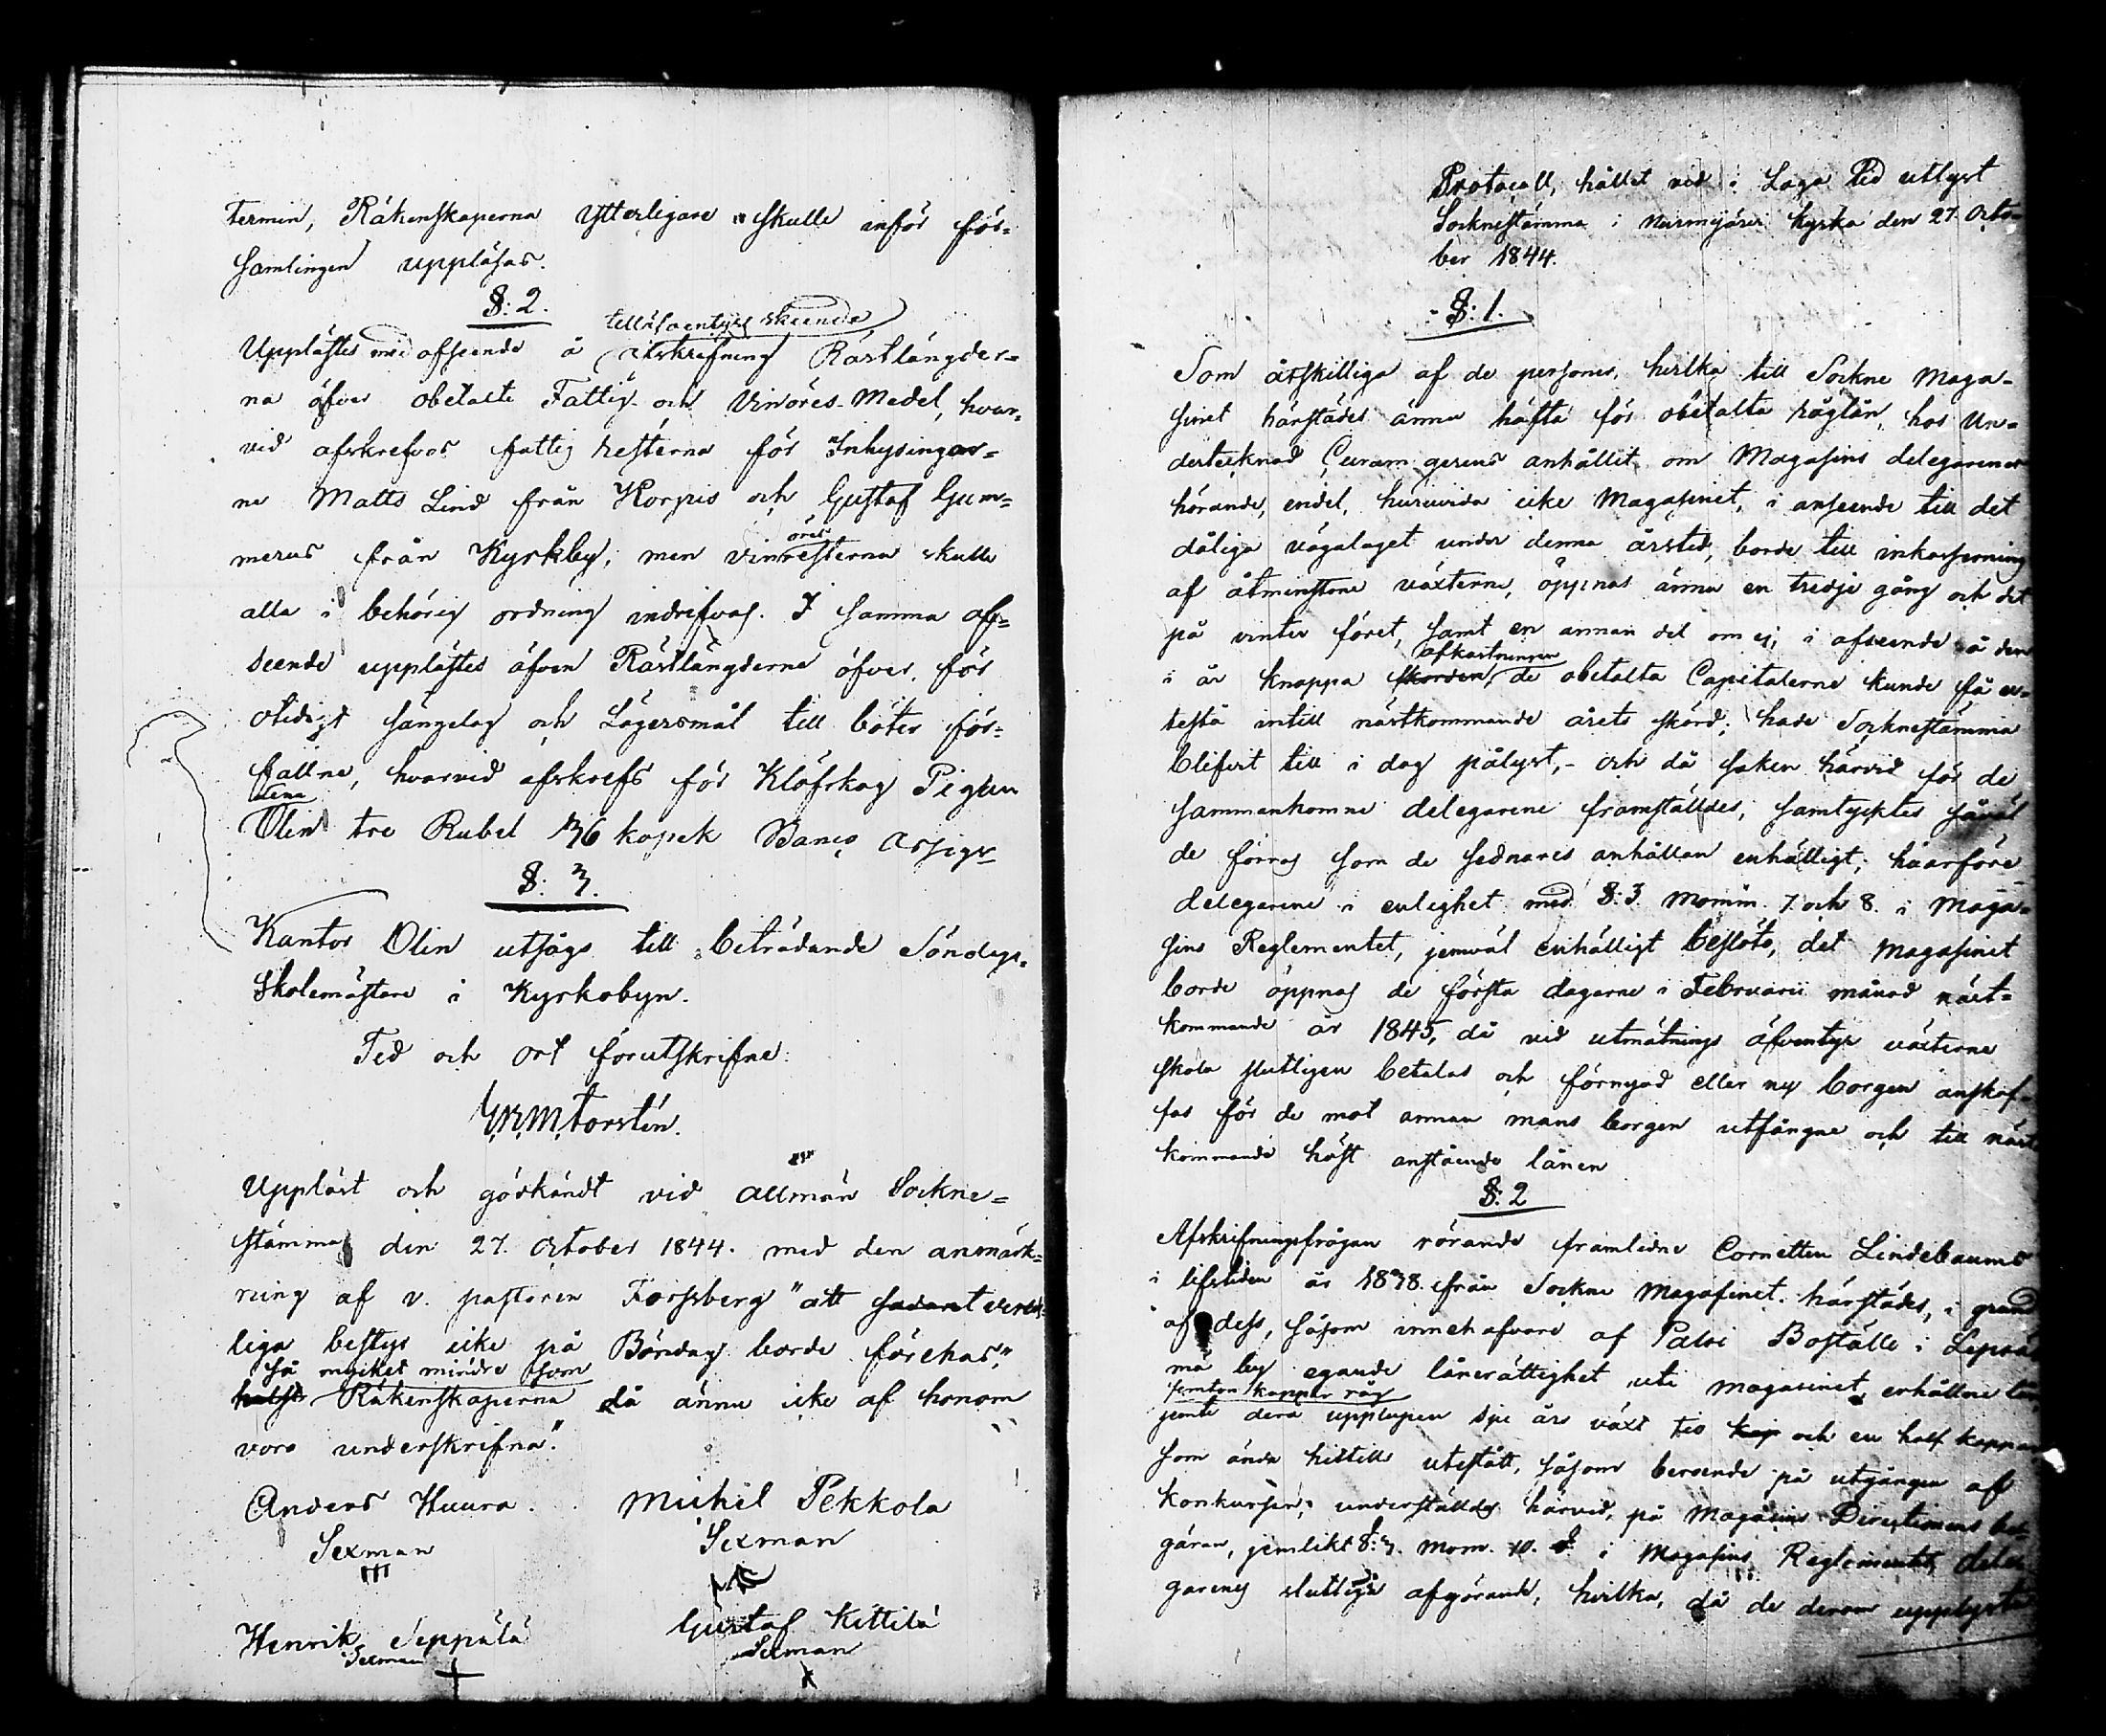 termin, Räkenskaperna ytterligare skulle inför för=
samlingen uppläsas.
§: 2.
tilläfventyrs skeende
Upplästes med afseende å afskrifning Rästlängder=
na öfver obetalte Fattig- och Vinöres-Medel, hvar=
vid afskrefvos fattig resterna för Inhysingar=
ne Matts Lind från Korpis och Gustaf Gum=
merus från Kyrkby; men vinöres
resterna skulle
alla i behörig ordning indrifvas. I samma af=
seende upplästes äfven Rästlängderne öfver, för
otidigt sängelag och Lägersmål till böter för=
fallne, hvarvid afskrefs för Klöfskog Pigan
Lena
Olin tre Rubel 36 kopek Banco Assigr
§: 3.
Kantor Olin utsågs till biträdande Söndags=
Skolemästare i Kyrkobyn.
Tid och ort förutskrifne:
G.R.M. Forstén.
Uppläst och godkändt vid allmän Sockne=
stämma den 27. October 1844. med den anmärk=
ning af v. pastoren Forssberg "att sådant verlds=
liga bestyr icke på Böndag borde förehas,"
så mycket mindre som
helst Räkenskaperna då ännu icke af honom
voro underskrifna."
Anders Huura. Michel Pekkola
Sexman Sexman
Henrik Seppälä Gustaf Kittilä
Sexman Sexman
Protocoll, hållet vid i Laga tid utlyst
Socknestämma i Nurmijärvi kyrka den 27. Octo=
ber 1844.
§: 1.
Som åtskilliga af de personer, hvilka till Sockne Maga=
sinet härstädes ännu häfta för obetalta råglån, hos Un=
dertecknad Curam gerens anhållit om Magasins delegarenes
hörande, endel, huruvida icke Magasinet, i anseende till det
dåliga vägalaget under denna årstid, borde till inkassering
af åtminstone växterne, öppnas ännu en tredje gång och det
på vinter föret, samt en annan del om ej, i afseende å den
afkastningen
i år knappa skörden, de obetalta Capitalerne kunde få u=
testå intill nästkommande årets skörd; hade Socknestämma
blifvit till i dag pålyst,- och då saken härvid för de
sammankomne delegarene framställdes, samtycktes såväl
de förras som de sednares anhållan enhälligt; hvarföre
delegarene i enlighet med §: 3. momm. 7. och 8. i Maga=
sins Reglementet, jemväl enhälligt beslöto, det Magasinet
borde öppnas de första dagarne i Februarii månad näst=
kommande år 1845, då vid utmätnings äfventyr växterne
skola slutligen betalas och förnyad eller ny borgen anskaf=
fas för de mot annan mans borgen utfångne och till näst
kommande höst anstående lånen
§: 2
Afskrifningsfrågan rörande framledne Cornetten Lindebaums
i lifstiden år 1838. från Sockne Magasinet härstädes, i grund
af dess, såsom innehafvare af Palvi Boställe i Lepsä=
mä by egande lånerättighet uti magasinet erhållne lån
femton kappar råg
jemte derå upplupen sju års växt tio kap och en half kappar
som ända hittills utestått, såsom beroende på utgången af
konkursen; underställdes härvid, på Magasins Directionens be=
gäran, jemlikt §: 3. mom. 10. i Magasins Reglementet, dele=
garenes slutliga afgörande, hvilka, då de derom upplysta